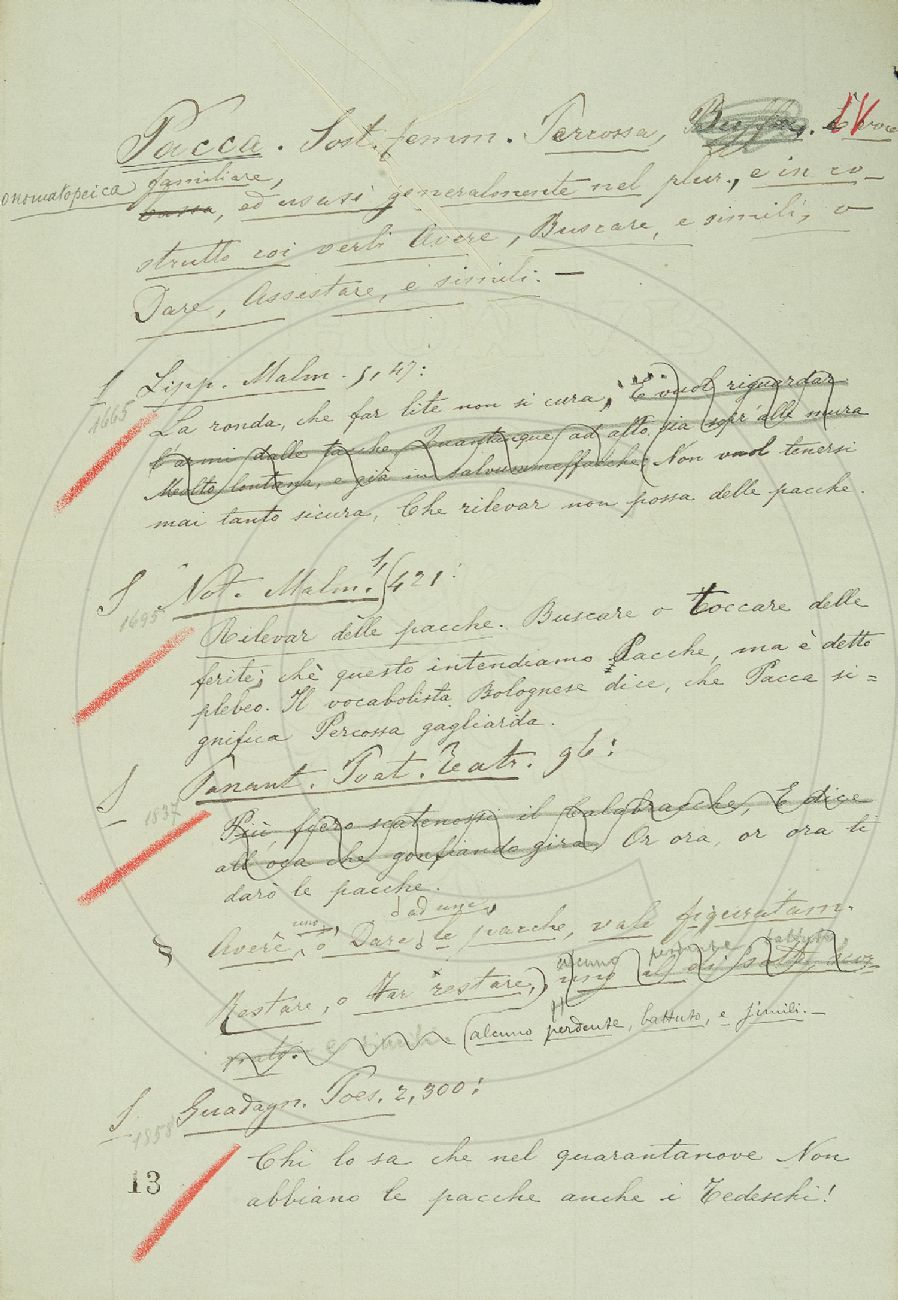 IV
Pacca. Sost. femm. Percossa, Buffa. È voce
onomatopeica familiare,
bassa, ed usasi generalmente nel plur., e in co-
strutto coi verbi Avere, Buscare, e simili, o
Dare, Assestare, e simili. —
§ Lipp. Malm. 5, 47:
1665
La ronda, che far lite non si cura, .... E vuol riguardar
l'armi dalle tacche, Quantunque ad alto sia sopr'alle mura
Molto lontana, e già in salvummeffacche, Non vuol tenersi
mai tanto sicura, Che rilevar non possa delle pacche.
§ Not. Malm. 1, 421:
1695
Rilevar delle pacche. Buscare o toccare delle
ferite; chè questo intendiamo Pacche, ma è detto
plebeo. Il vocabolista Bolognese dice, che Pacca si=
gnifica Percossa gagliarda.
§ Panant. Poet. Teatr. 96:
1837
Più fiero scatenossi il Calabrache, E dice
all'oca che gonfiando gira: Or ora, or ora li
darò le pacche.
§ Avere, o Dare le pacche, vale figuratam.
Restare, o Far restare,
alcuno perdente battuto
(alcuno perdente, battuto, e simili. —
§ Guadagn. Poes. 2, 300:
1858
Chi lo sa che nel quarantanove Non
abbiano le pacche anche i Tedeschi!
13